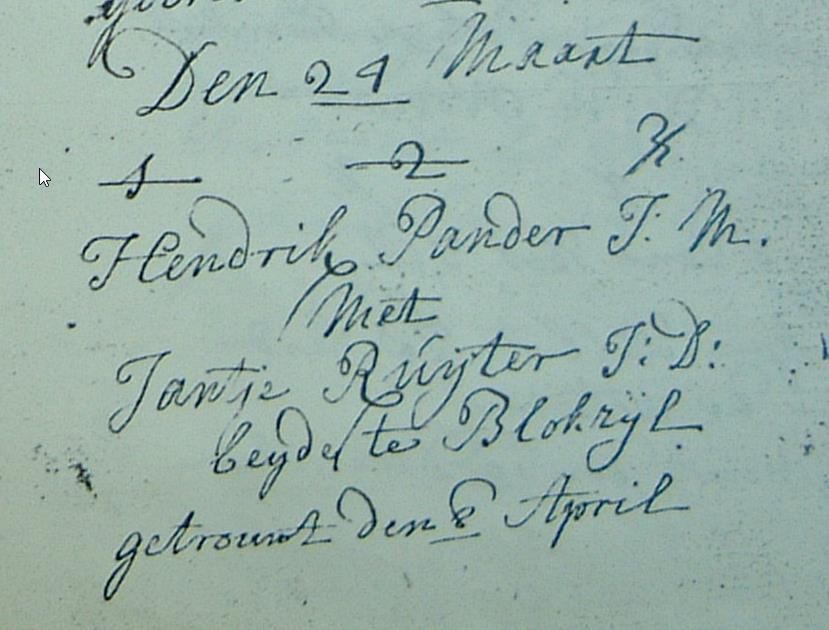 Den 24 Maart
1 2 3
Hendrik Pander J: M.
Met
Jantje Ruÿter J: D:
beyde te Blokzyl
getrouwt den 8 April